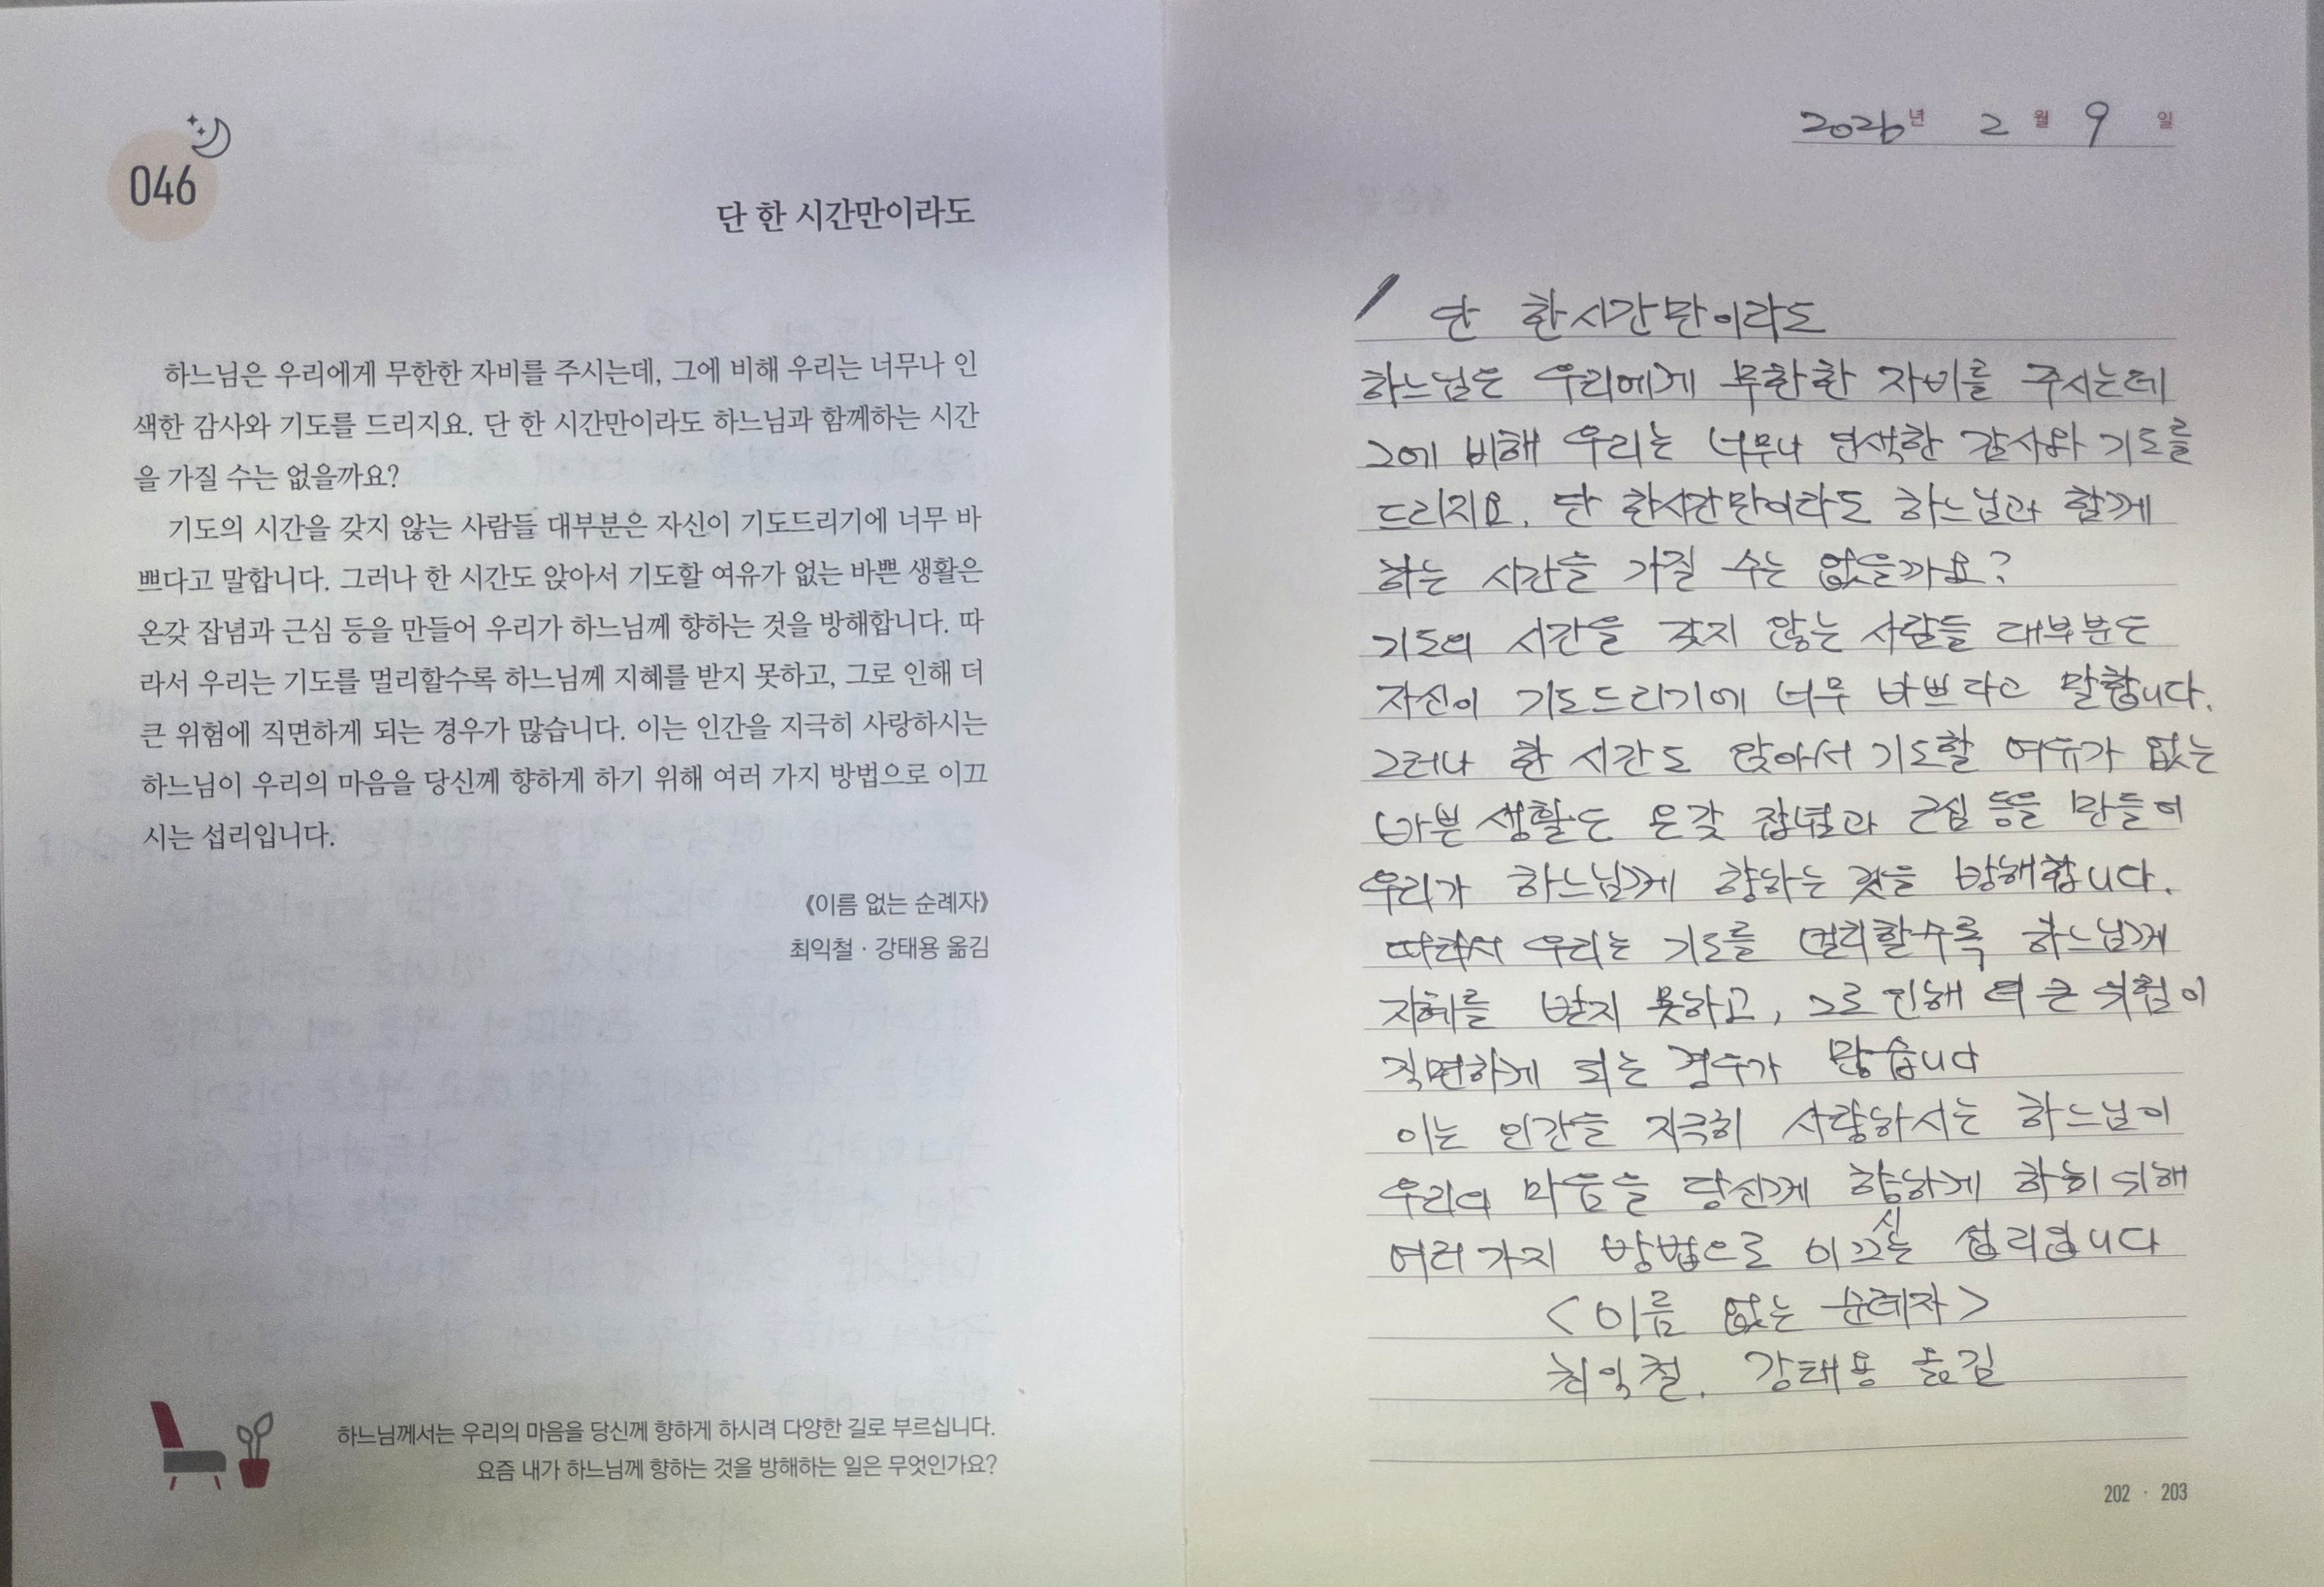 046
단 한 시간만이라도
하느님은 우리에게 무한한 자비를 주시는데, 그에 비해 우리는 너무나 인
색한 감사와 기도를 드리지요. 단 한 시간만이라도 하느님과 함께하는 시간
을 가질 수는 없을까요?
기도의 시간을 갖지 않는 사람들 대부분은 자신이 기도드리기에 너무 바
쁘다고 말합니다. 그러나 한 시간도 앉아서 기도할 여유가 없는 바쁜 생활은
온갖 잡념과 근심 등을 만들어 우리가 하느님께 향하는 것을 방해합니다. 따
라서 우리는 기도를 멀리할수록 하느님께 지혜를 받지 못하고, 그로 인해 더
큰 위험에 직면하게 되는 경우가 많습니다. 이는 인간을 지극히 사랑하시는
하느님이 우리의 마음을 당신께 향하게 하기 위해 여러 가지 방법으로 이끄
시는 섭리입니다.
《이름 없는 순례자》
최익철 · 강태용 옮김
하느님께서는 우리의 마음을 당신께 향하게 하시려 다양한 길로 부르십니다.
요즘 내가 하느님께 향하는 것을 방해하는 일은 무엇인가요?
2026년 2월 9일
단 한시간만이라도
하느님은 우리에게 무한한 자비를 주시는데
그에 비해 우리는 너무나 인색한 감사와 기도를
드리지요. 단 한시간만이라도 하느님과 함께
하는 시간을 가질 수는 없을까요?
기도의 시간을 갖지 않는 사람들 대부분은
자신이 기도드리기에 너무 바쁘다고 말합니다.
그러나 한 시간도 앉아서 기도할 여유가 없는
바쁜 생활은 온갖 잡념과 근심 등을 만들어
우리가 하느님께 향하는 것을 방해합니다.
따라서 우리는 기도를 멀리할수록 하느님께
지혜를 받지 못하고, 그로 인해 더 큰 위험이
직면하게 되는 경우가 많습니다
이는 인간을 지극히 사랑하시는 하느님이
우리의 마음을 당신께 향하게 위해
여러 가지 방법으로 이끄시는 섭리입니다
<이름 없는 순례자>
최익철. 강태용 옮김
202 · 203